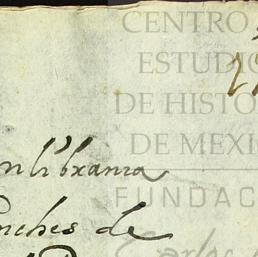 CENTRO
ESTUDIO
DE HISTO
DE MEXI
FUNDAC
Carlos
nlibrania
nches de